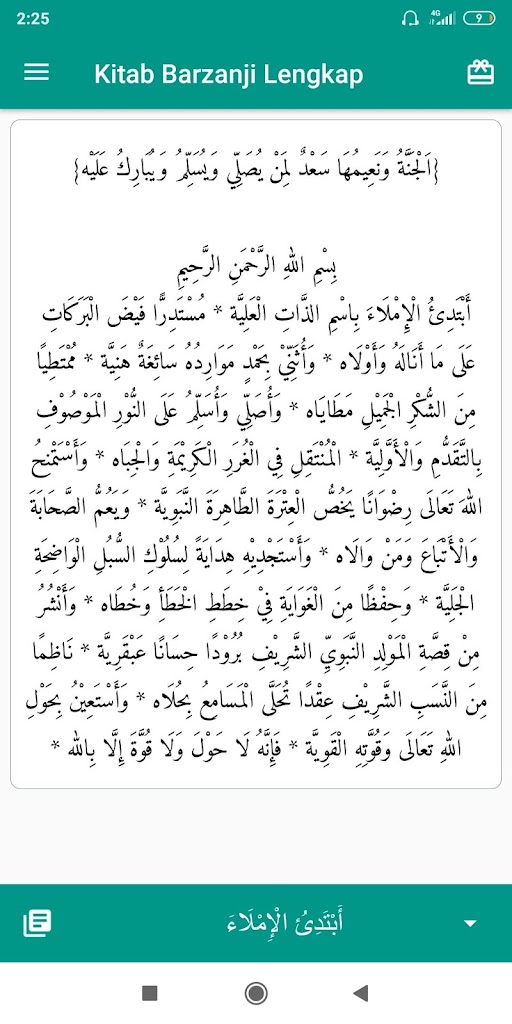 2:25
4G
9
Kitab Barzanji Lengkap
{اَلْجَنَّةُ وَنَعِيمُهَا سَعْدٌ لِمَنْ يُصَلِّي وَيُسَلِّمُ وَيُبَارِكُ عَلَيْه}
بِسْمِ اللهِ الرَّحْمَنِ الرَّحِيمِ
أَبْتَدِئُ الْإِمْلَاءَ بِاسْمِ الذَّاتِ الْعَلِيَّة * مُسْتَدِرًّا فَيْضَ الْبَرَكَاتِ
عَلَى مَا أَنَالَهُ وَأَوْلَاه * وَأُثَنِّيْ بِحَمْدٍ مَوَارِدُهُ سَائِغَةٌ هَنِيَّة * مُمْتَطِيًا
مِنَ الشُّكْرِ الْجَمِيْلِ مَطَايَاه * وَأُصَلِّي وَأُسَلِّمُ عَلَى النُّوْرِ الْمَوْصُوْفِ
بِالتَّقَدُّمِ وَالْأَوَّلِيَّة * الْمُنْتَقِلِ فِي الْغُرَرِ الْكَرِيْمَةِ وَالْجِبَاه * وَأَسْتَمْنِحُ
اللهَ تَعَالَى رِضْوَانًا يَخُصُّ الْعِتْرَةَ الطَّاهِرَةَ النَّبَوِيَّة * وَيَعُمُّ الصَّحَابَةَ
وَالْأَتْبَاعَ وَمَنْ وَالَاه * وَأَسْتَجْدِيْهِ هِدَايَةً لِسُلُوْكِ السُّبُلِ الْوَاضِحَةِ
الْجَلِيَّة * وَحِفْظًا مِنَ الْغَوَايَةِ فِيْ خِطَطِ الْخَطَأِ وَخُطَاه * وَأَنْشُرُ
مِنْ قِصَّةِ الْمَوْلِدِ النَّبَوِيِّ الشَّرِيْفِ بُرُوْدًا حِسَانًا عَبْقَرِيَّة * نَاظِمًا
مِنَ النَّسَبِ الشَّرِيْفِ عِقْدًا تُحَلَّى الْمَسَامِعُ بِحُلَاه * وَأَسْتَعِيْنُ بِحَوْلِ
اللهِ تَعَالَى وَقُوَّتِهِ الْقَوِيَّة * فَإِنَّهُ لَا حَوْلَ وَلَا قُوَّةَ إِلَّا بِالله *
أَبْتَدِئُ الْإِمْلَاءَ